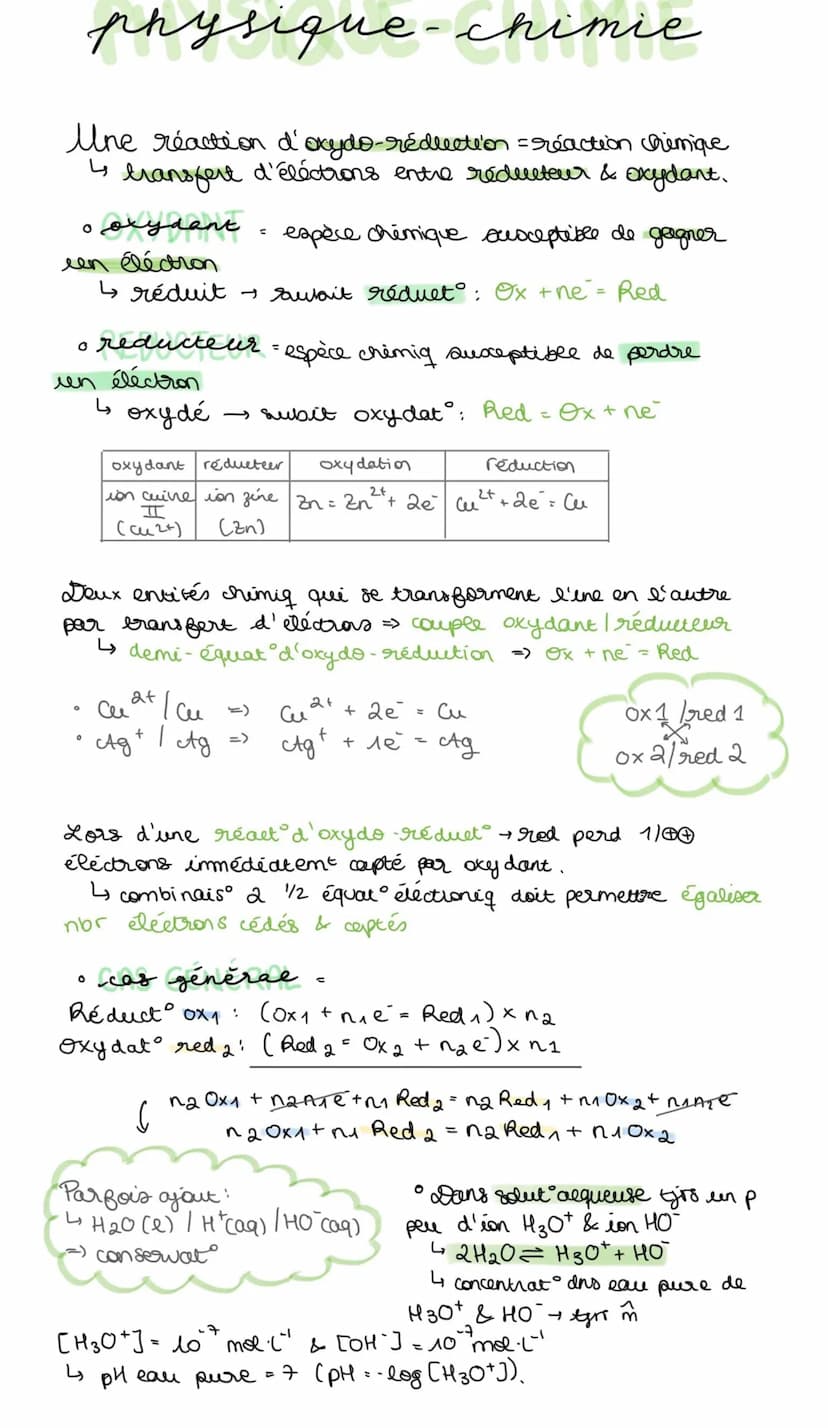 physique-chimie
Une réaction d'oxydo-réduction = réaction chimique
↳ transfert d'éléctrons entre réducteur & oxydant.
◦ oxydant = espèce chimique susceptible de gagner
un éléctron
↳ réduit → subit réduct° : Ox + ne⁻ = Red
◦ réducteur = espèce chimiq susceptible de perdre
un éléctron
↳ oxydé → subit oxydat° : Red = Ox + ne⁻
oxydant | réducteur | oxydation | réduction
ion cuivre II (Cu²⁺) | ion zinc (Zn) | Zn = Zn²⁺ + 2e⁻ | Cu²⁺ + 2e⁻ = Cu
Deux entités chimiq qui se transforment l'une en l'autre
par transfert d'éléctrons => couple oxydant/réducteur
↳ demi-équat° d'oxydo-réduction => Ox + ne⁻ = Red
• Cu²⁺/Cu => Cu²⁺ + 2e⁻ = Cu
• Ag⁺/Ag => Ag⁺ + 1e⁻ = Ag
ox1/red1
ox2/red2
Lors d'une réact° d'oxydo-réduct° → red perd 1/⊕⊕
éléctrons immédiatemt capté par oxydant.
↳ combinais° 2 1/2 équat° éléctroniq doit permettre égaliser
nbr éléctrons cédés & captés
◦ cas général =
Réduct° ox1 : (Ox1 + n1e⁻ = Red1) × n2
Oxydat° red2 : (Red2 = Ox2 + n2e⁻) × n1
n2Ox1 + n2n1e⁻ + n1Red2 = n2Red1 + n1Ox2 + n1n2e⁻
n2Ox1 + n1Red2 = n2Red1 + n1Ox2
Parfois ajout :
↳ H2O(l) / H⁺(aq) / HO⁻(aq)
=> conservat°
° Dans solut° aequeuse tjrs un p
peu d'ion H3O⁺ & ion HO⁻
↳ 2H2O ⇌ H3O⁺ + HO⁻
↳ concentrat° dns eau pure de
H3O⁺ & HO⁻ → tjrs m̂
[H3O⁺] = 10⁻⁷ mol·L⁻¹ & [OH⁻] = 10⁻⁷ mol·L⁻¹
↳ pH eau pure = 7 (pH = -log[H3O⁺]).